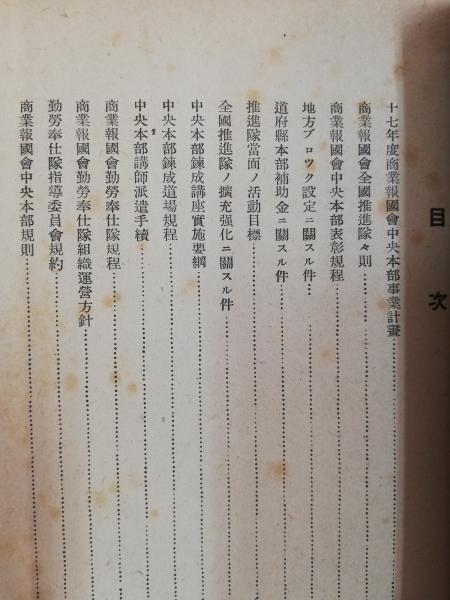 目次
十七年度商業報國會中央本部事業計畫
商業報國會全國推進隊々則
商業報國會中央本部表彰規程
地方ブロツク設定ニ關スル件
道府縣本部補助金ニ關スル件
推進隊當面ノ活動目標
全國推進隊ノ擴充强化ニ關スル件
中央本部鍊成講座實施要綱
中央本部鍊成道場規程
中央本部講師派遣手續
商業報國會勤勞奉仕隊規程
商業報國會勤勞奉仕隊組織運營方針
勤勞奉仕隊指導委員會規約
商業報國會中央本部規則